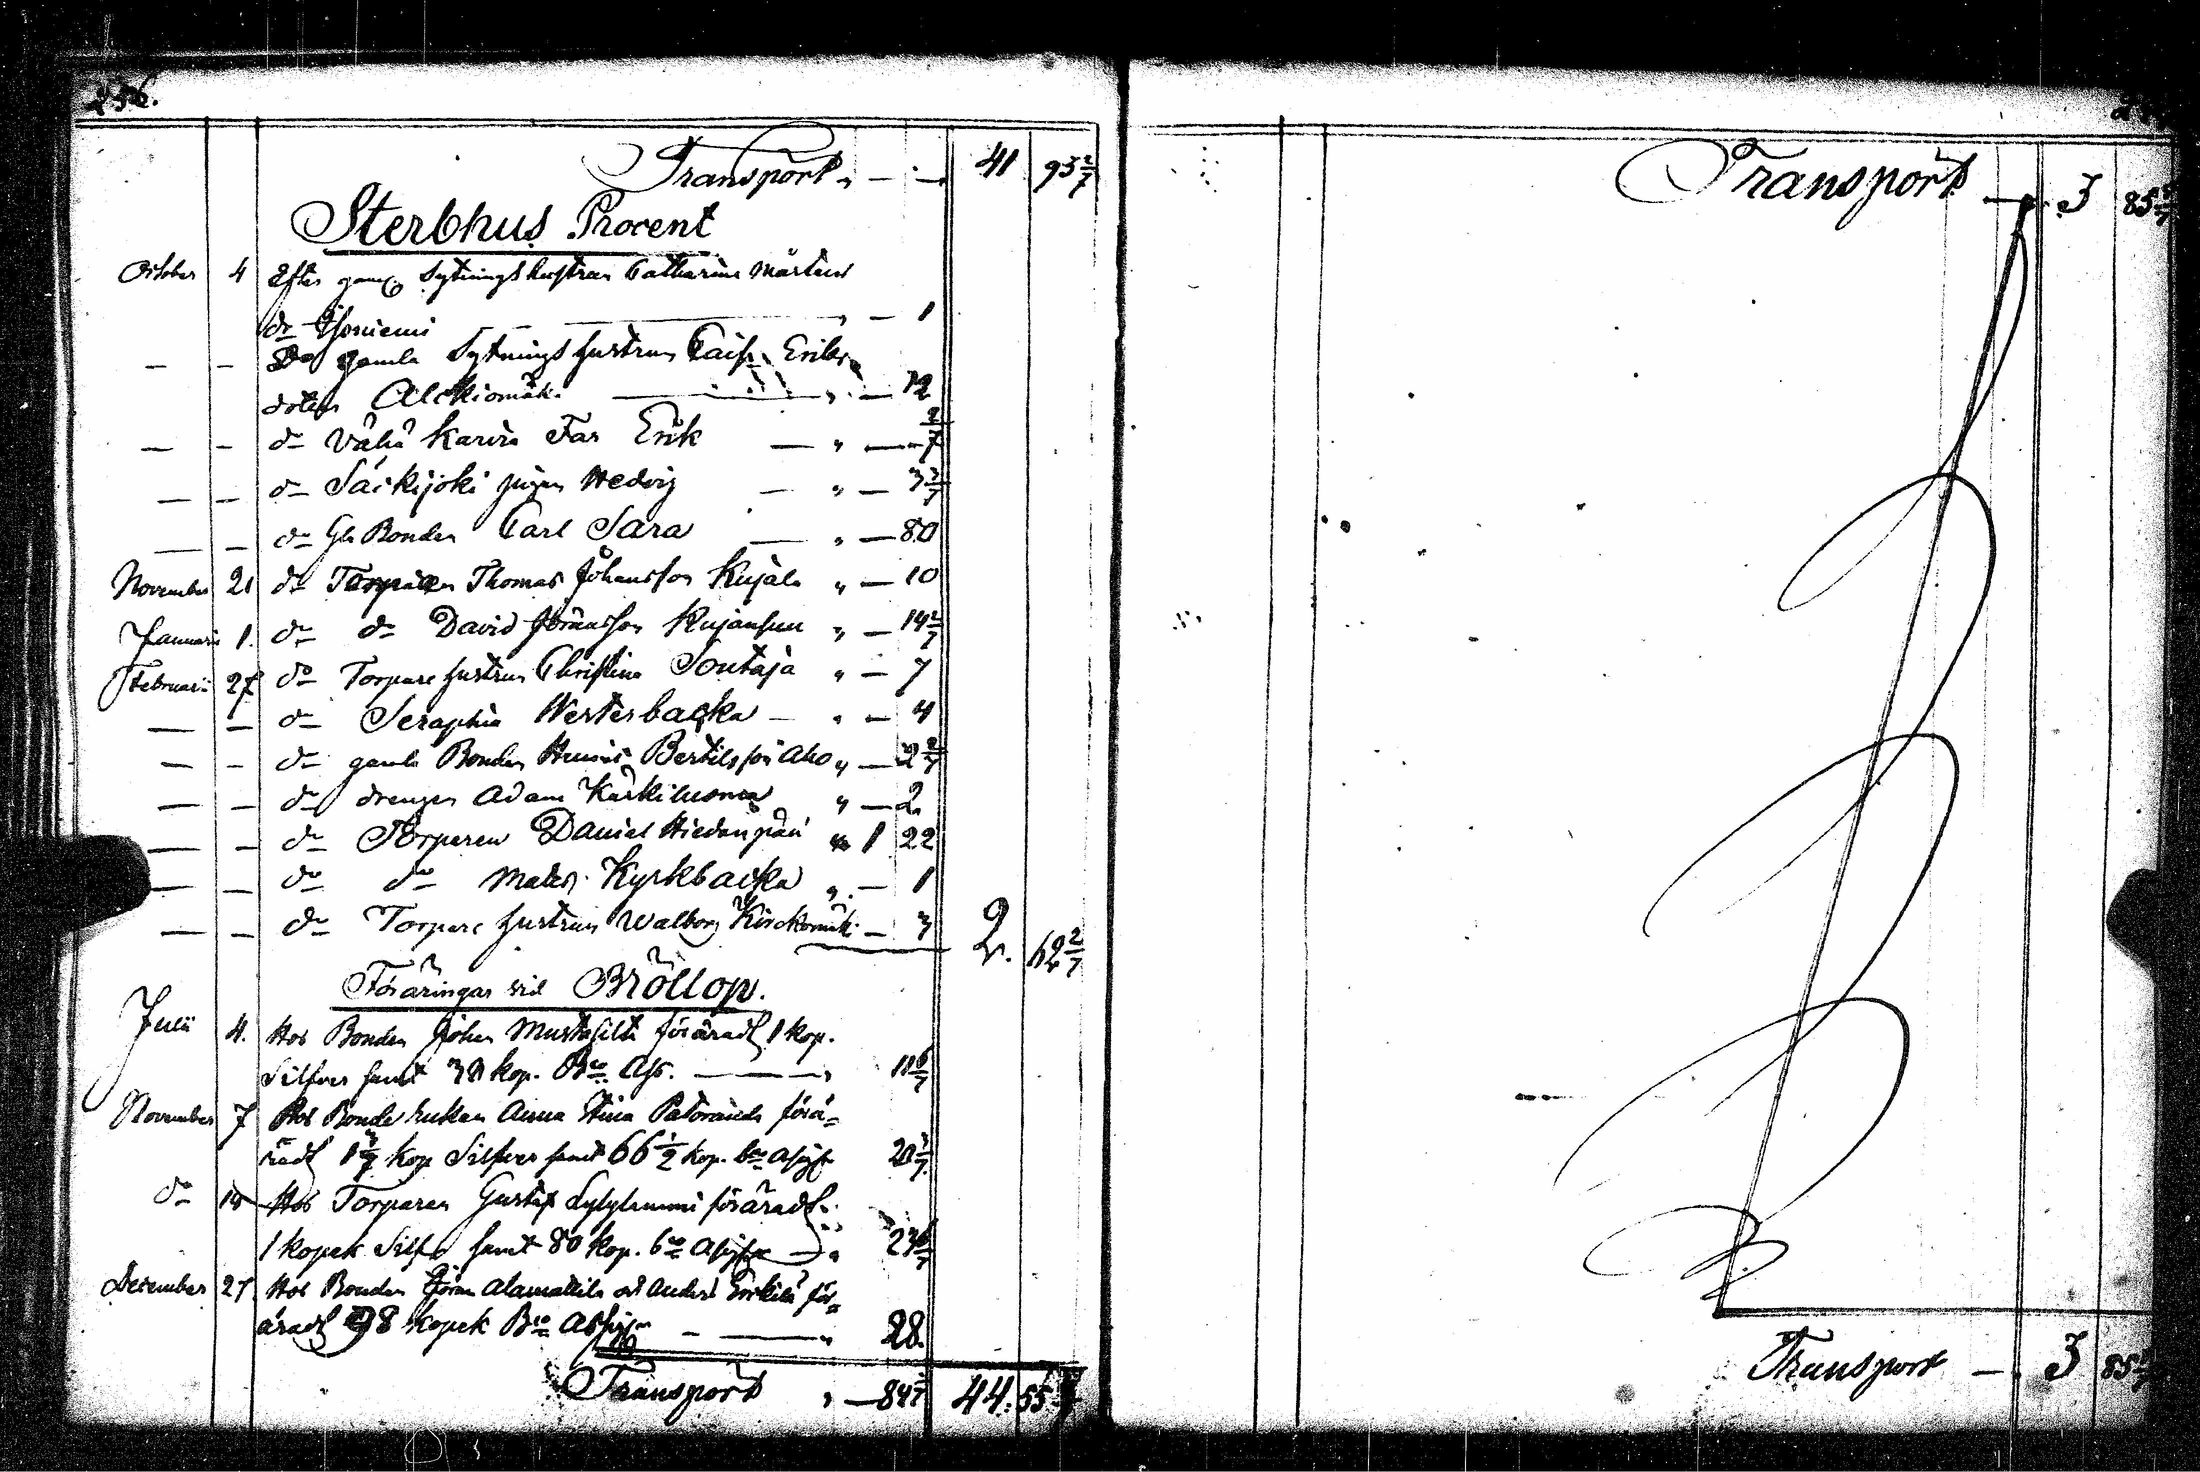 256.
Transport " — 41 93 2/7
Sterbhus Procent
October 4 Efter gamla Sytningshustrun Catharina Mårtens
dr Isoniemi " — 1
— — Do gamla Sytnings hustrun Caisa Eriks
doter Alckiomäki " — 12
— — do Vähä Karvia Far Erik — " — 2/7
— — do Säckijoki pigan Hedvig — " — 3 3/7
— — do Gl. Bonden Carl Sara — " — 80
November 21 do Torparen Thomas Johansson Kujala " — 10
Januarii 1. do do David Jöransson Kujansuu " — 14 2/7
Februarii 27 do Torpare hustrun Christina Soutaja " — 7
— — do Seraphia Westerbacka — " — 4
— — do gamla Bonden Bertilsson Aho " — 2/7
— — do drengen Adam " — 2
— — do Torparen Daniel Hiedanpää " 1 22
— — do do Mats Kyrkbacka " — 1
— — do Torpare hustrun Walborg Kirckomäki — 3 2. 62 2/7
Föräringar vid Bröllop.
Julii 4. Hos Bonden Johan Mustasilta föräradt 1 kop.
Silfver samt 38 kop. Bco Ass. — " 11 6/7
November 7 Hos Bonde Enkan Anna Stina förä-
radt 1 3/7 kop Silfver samt 66 1/2 kop. bco Assign 20 3/7
do Hos Torparen Gustaf Lylylammi föräradt
1 kopek Silfv samt 80 kop. bco Assign — " 23 6/7
December 27 Hos Bonden Jöran Alamattila och Anders Erkilä för-
äradt 98 kopek Bco Assign — " 28.
Transport " — 84 1/7 44. 55
Transport — 3 85
Transport — 3 85